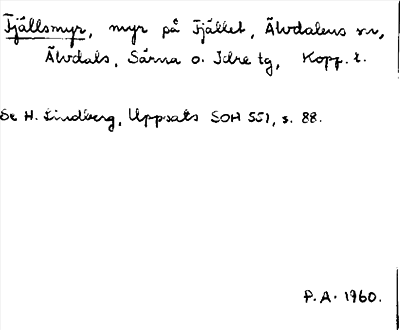 Fjällsmyr, myr på Fjället, Älvdalens sn,
Älvdals, Särna o. Idre tg, Kopp. l.
Se H. Lindberg, Uppsats SOH 551, s. 88.
P.A. 1960.